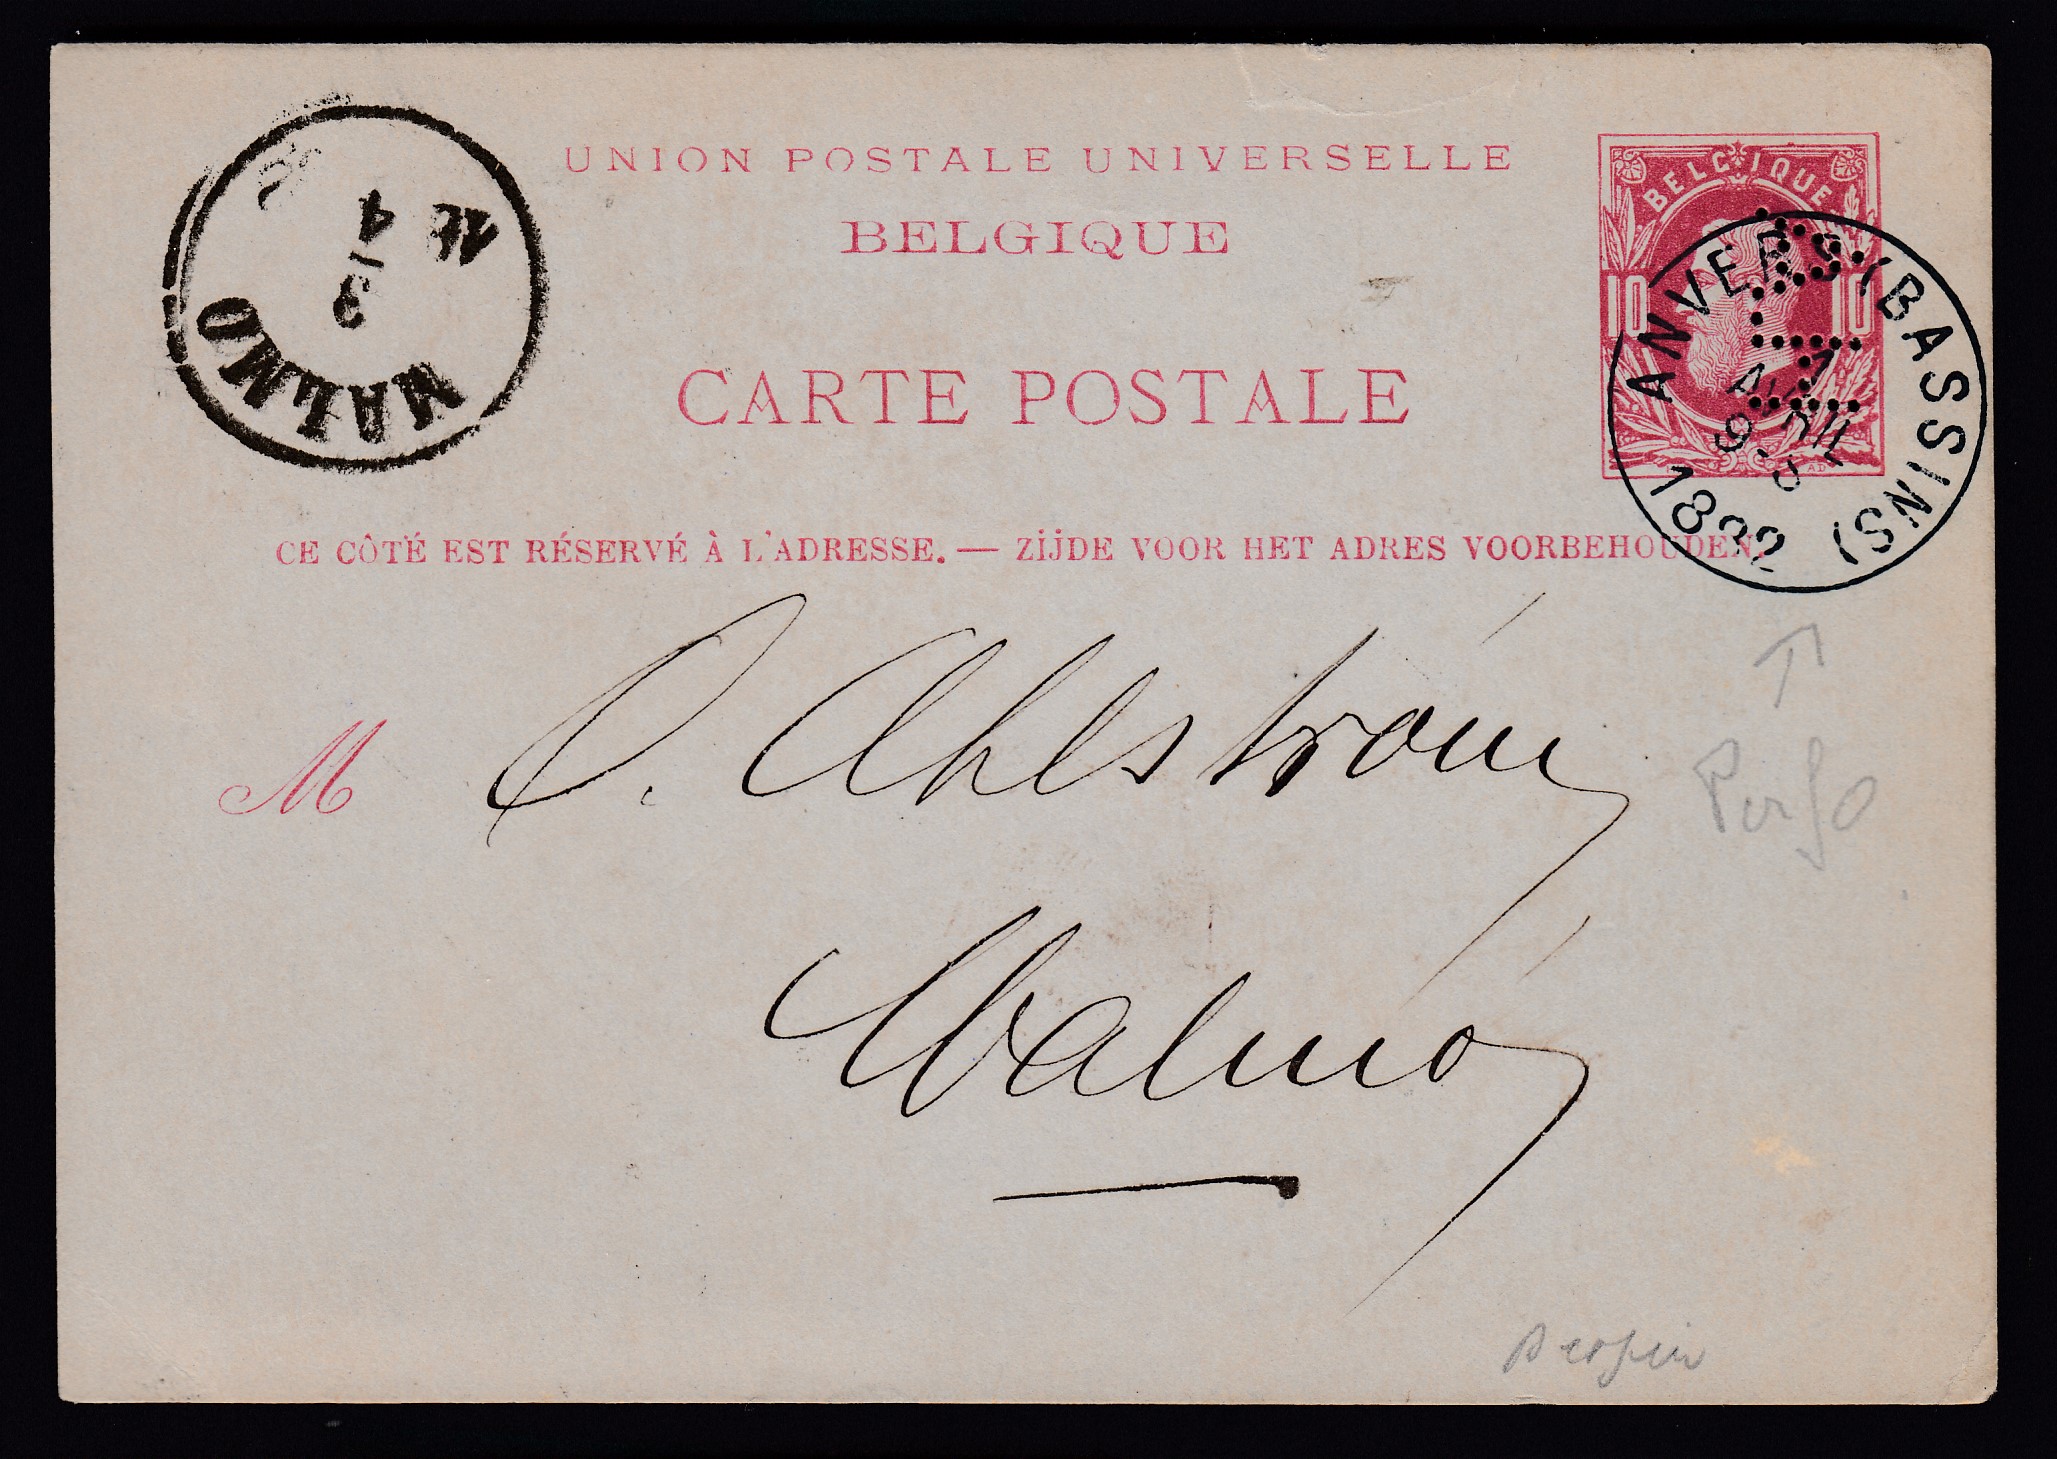 UNION POSTALE UNIVERSELLE
BELGIQUE
CARTE POSTALE
BELGIQUE
10 10
ANVERS (BASSINS)
AVRIL
1882
MALMO
3/4
CE CÔTÉ EST RÉSERVÉ À L'ADRESSE. — ZIJDE VOOR HET ADRES VOORBEHOUDEN.
M O. Ahlström
Malmö
Perfo